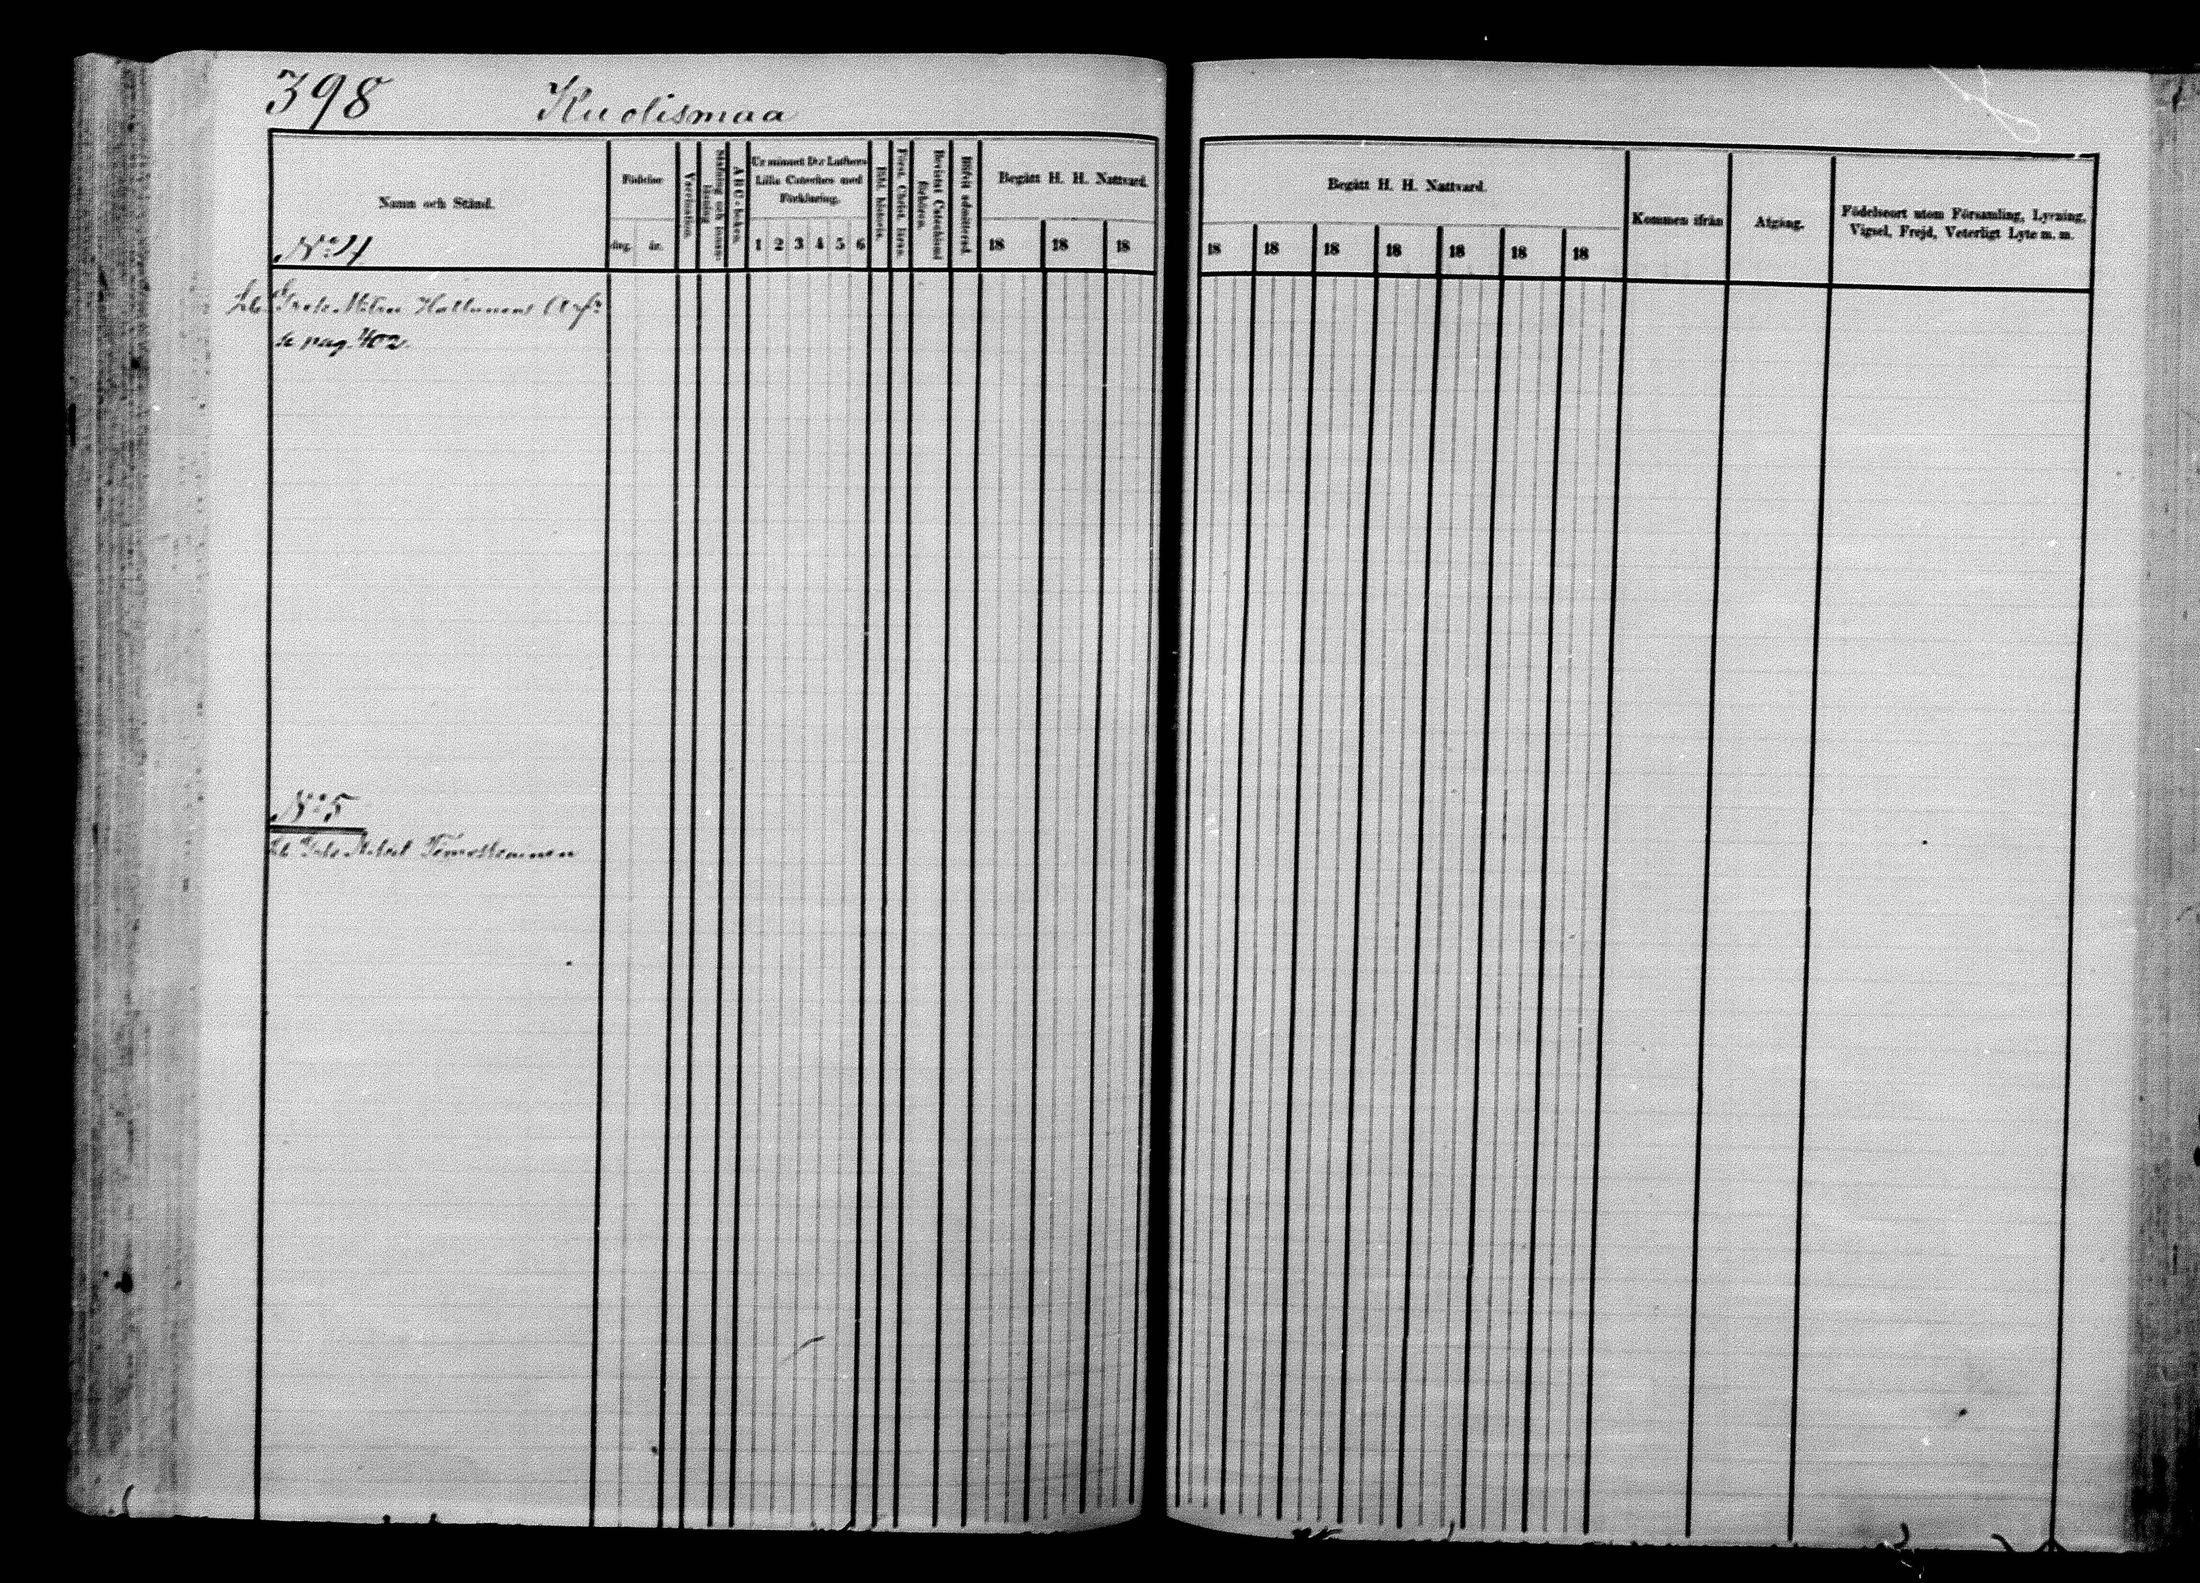 398 Kuolismaa
Namn och Stånd.
Födelse
dag. år.
Vaccination.
Stafning och innanläsning.
A B C-boken.
Ur minnet D:r Luthers
Lilla Cateches med
Förklaring.
1 2 3 4 5 6
Bibl. historia.
Först. Christ. läran.
Bevistat Catechismi förhören.
Blifvit admitterad.
Begått H. H. Nattvard.
18 18 18
Begått H. H. Nattvard.
18 18 18 18 18 18 18
Kommen ifrån
Afgång.
Födelseort utom Församling, Lysning,
Vigsel, Frejd, Veterligt Lyte m. m.
N:o 4
Hallunens Arf:r
se pag. 402.
N:o 5